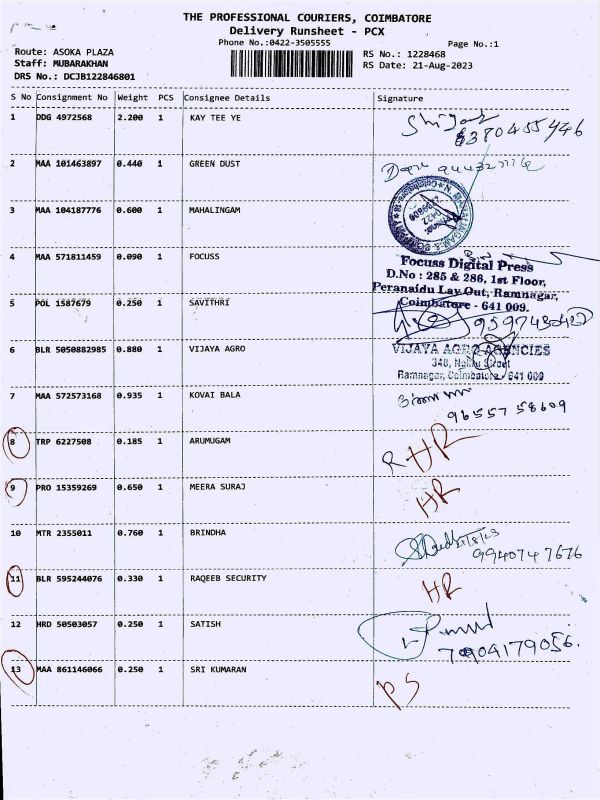 THE PROFESSIONAL COURIERS, COIMBATORE
Delivery Runsheet - PCX
Phone No.:0422-3505555
Page No.:1
Route: ASOKA PLAZA
RS No.: 1228468
Staff: MUBARAKHAN
RS Date: 21-Aug-2023
DRS No.: DCJB122846801
S No Consignment No Weight PCS Consignee Details Signature
1 DDG 4972568 2.200 1 KAY TEE YE
2 MAA 101463897 0.440 1 GREEN DUST
3 MAA 104187776 0.600 1 MAHALINGAM
4 MAA 571811459 0.090 1 FOCUSS
Focuss Digital Press
D.No : 285 & 286, 1st Floor,
Peranaidu Lay Out, Ramnagar,
Coimbatore - 641 009.
5 POL 1587679 0.250 1 SAVITHRI
6 BLR 5050882985 0.880 1 VIJAYA AGRO
VIJAYA AGRO AGENCIES
348, Nehru Street
Ramnagar, Coimbatore - 641 009
7 MAA 572573168 0.935 1 KOVAI BALA
96557 58609
8 TRP 6227508 0.185 1 ARUMUGAM R HR
9 PRO 15359269 0.650 1 MEERA SURAJ HR
10 MTR 2355011 0.760 1 BRINDHA
9940747676
11 BLR 595244076 0.330 1 RAQEEB SECURITY HR
12 HRD 50503057 0.250 1 SATISH
70904179056.
13 MAA 861146066 0.250 1 SRI KUMARAN DS